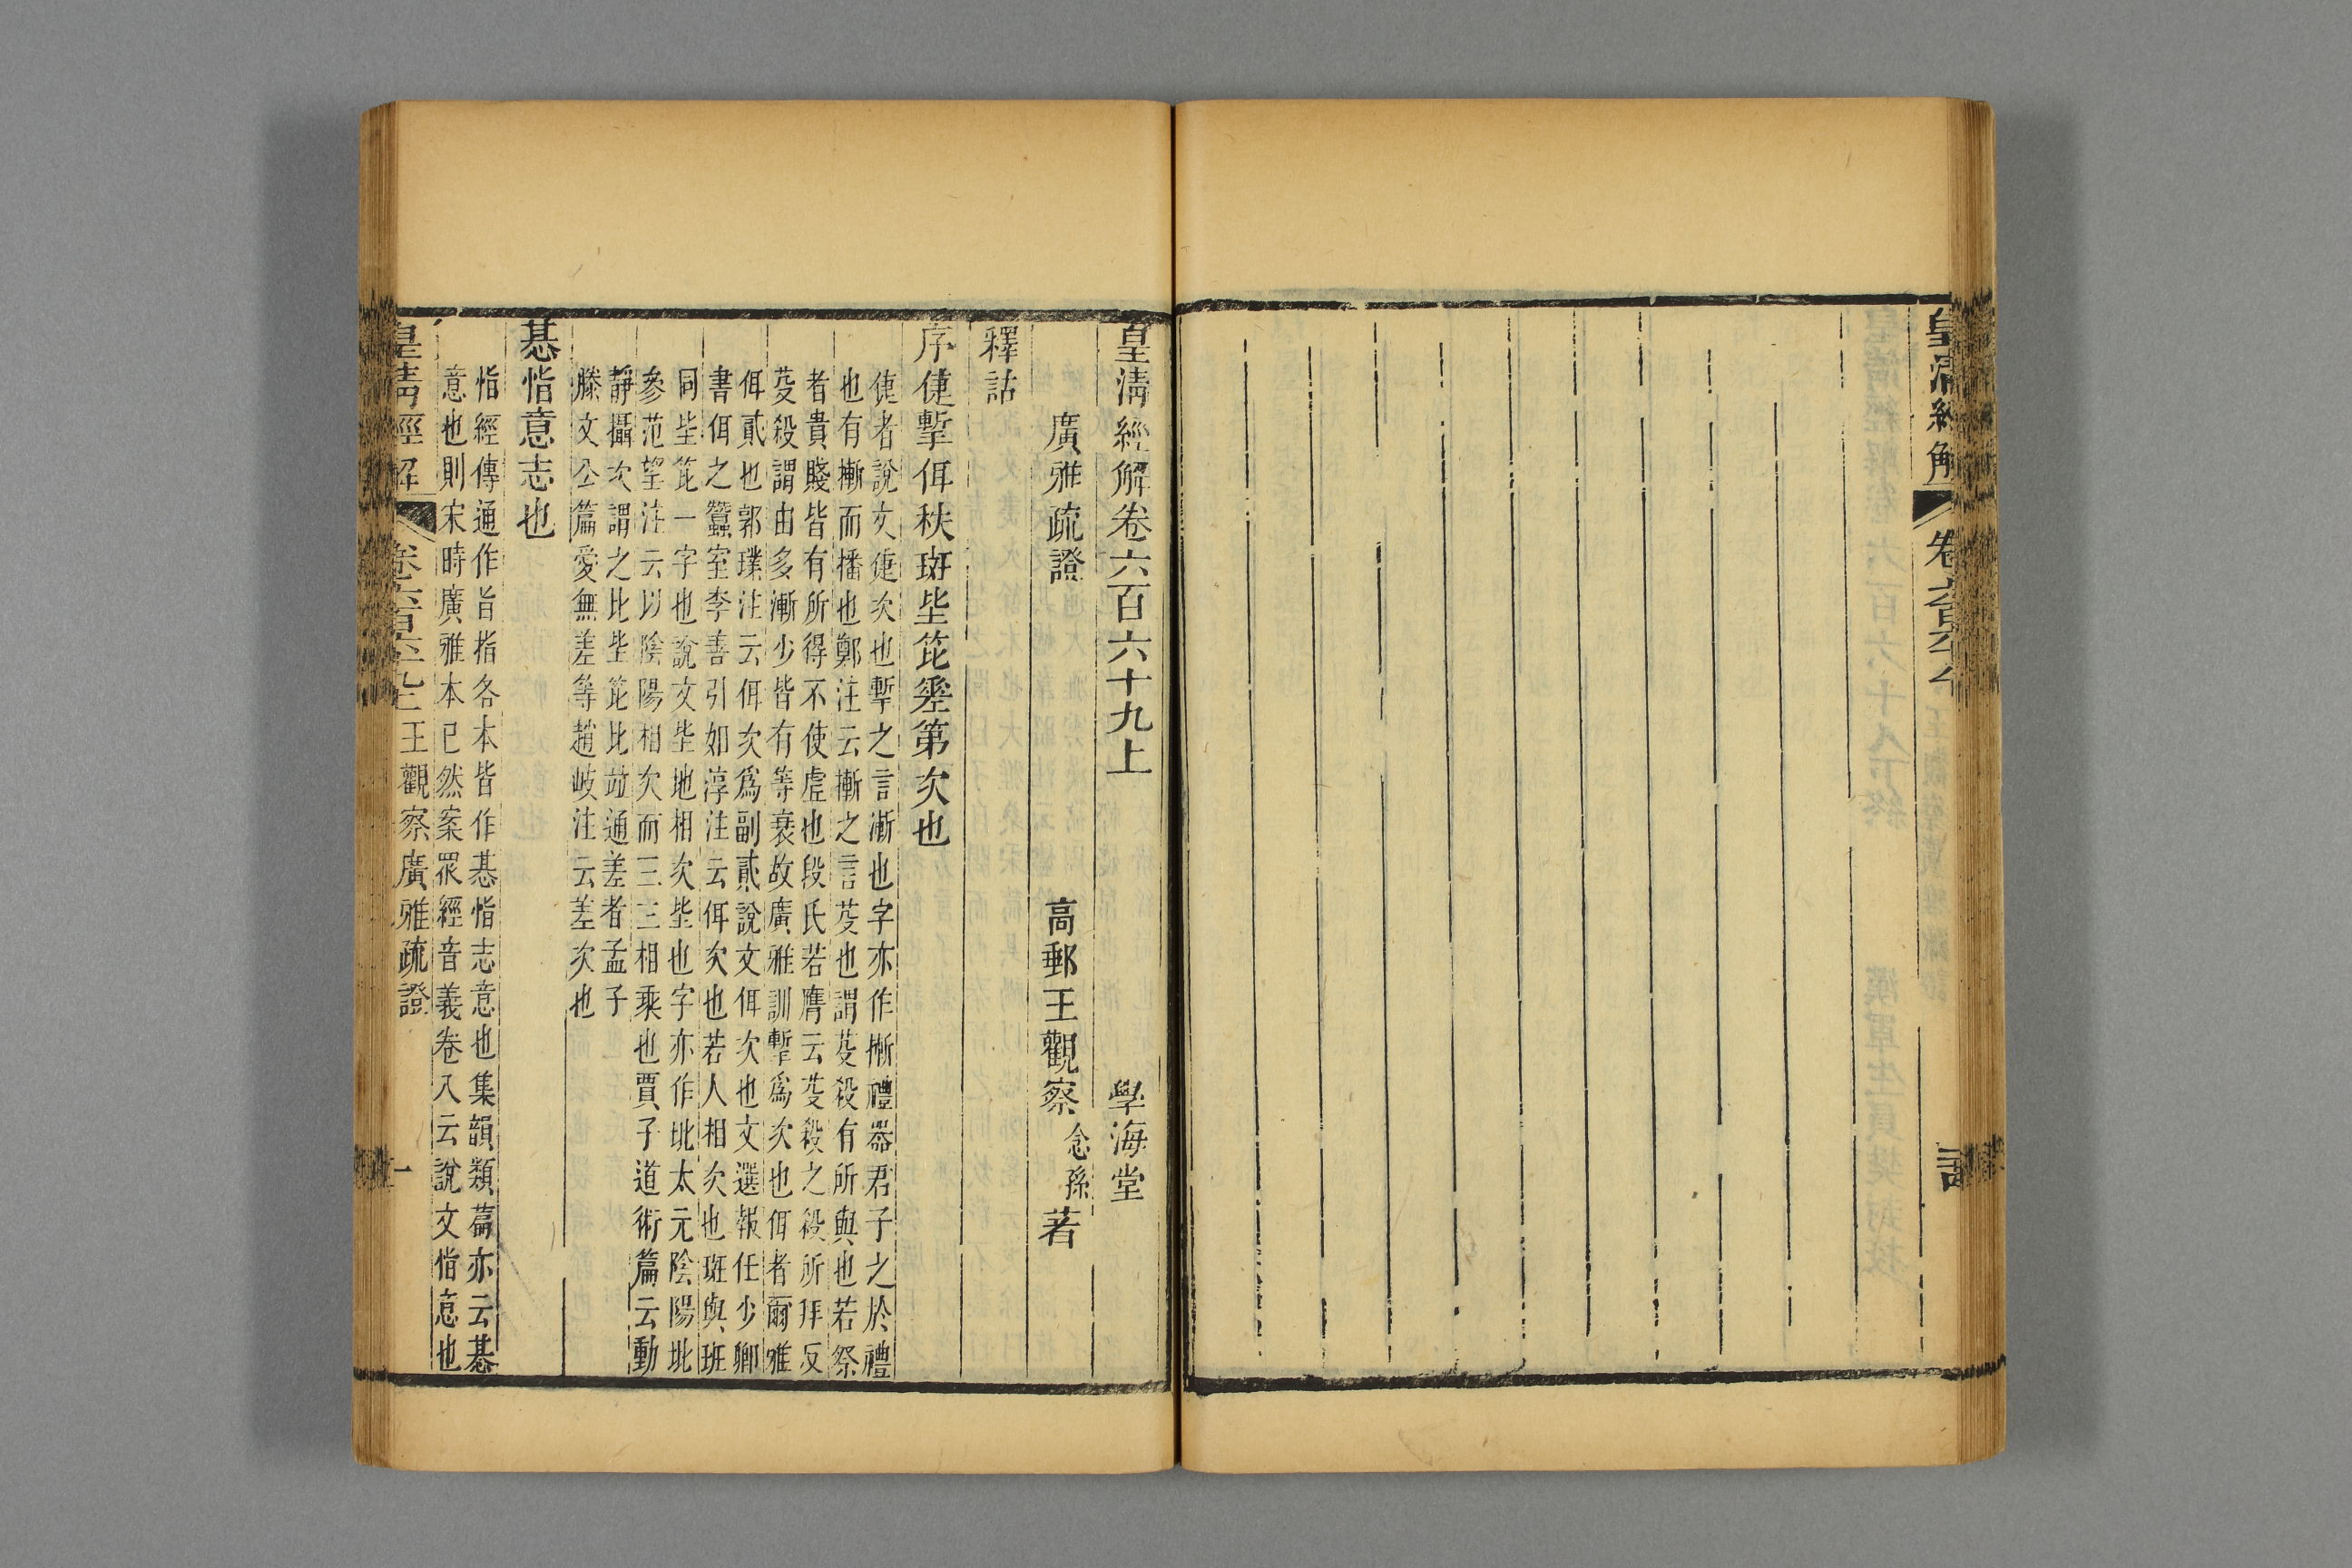 皇清經解
卷六百六十八
皇清經解卷六百六十九上
學海堂
廣雅疏證
高郵王觀察念孫著
釋詁
序倢㨻佴秩斑坒笓㢒第次也
倢者說文倢次也㨻之言漸也字亦作摲禮器君子之於禮
也有摲而播也鄭注云摲之言芟也謂芟殺有所與也若祭
者貴賤皆有所得不使虛也段氏若膺云芟殺之殺所拜反
芟殺謂由多漸少皆有等衰故廣雅訓㨻爲次也佴者爾雅
佴貳也郭璞注云佴次爲副貳說文佴次也文選報任少卿
書佴之蠶室李善引如淳注云佴次也若人相次也斑與班
同坒笓一字也說文坒地相次坒也字亦作玭太元陰陽玭
參范望注云以陰陽相次而三三相乘也賈子道術篇云動
靜攝次謂之比坒笓比竝通差者孟子
滕文公篇愛無差等趙岐注云差次也
惎恉意志也
恉經傳通作旨指各本皆作惎恉志意也集韻類篇亦云惎
意也則宋時廣雅本已然案眾經音義卷八云說文恉意也
皇清經解
卷六百六十九上
王觀察廣雅疏證
一